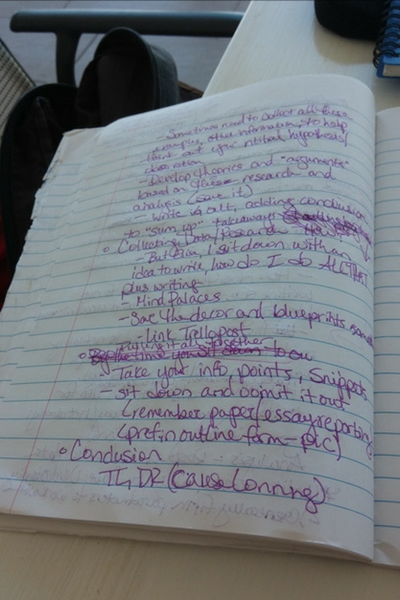 - Sometimes need to collect all these
examples, other information, to help
point out your initial hypothesis/
observation
- Develop theories and "arguments"
based on these research and
analysis (save it)
- Write it all, adding conclusion
to "sum up" takeaways
o Collecting Data/Research
- But Erin, I sit down with an
idea to write, how do I do ALL THAT
plus writing
- Mind Palaces
- Save the decor and blueprints
- Link Tello post
putting it all together
o By the time you sit down to
- Take your info, points, snippets
- sit down and vomit it out
(remember paper/essay reporting
(pref. in outline form - pic)
o Conclusion
TL;DR (cause Lonning)